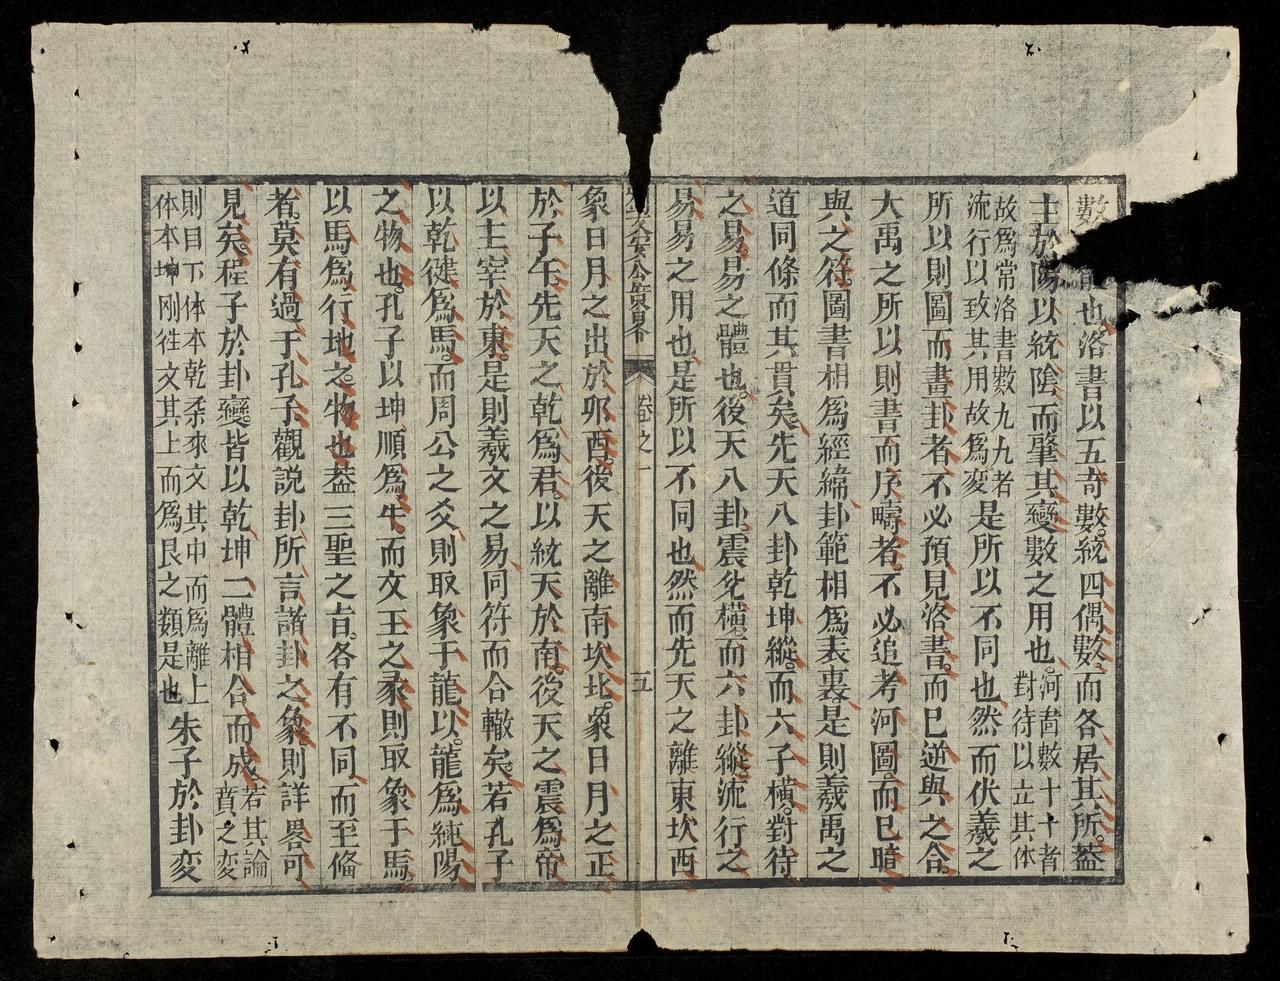 數
能也洛書以五奇數統四偶數而各居其所葢
主於陽以統陰而肇其變數之用也河啚數十十者
對待以立其体
故爲常洛書數九九者
流行以致其用故爲変是所以不同也然而伏羲之
所以則圖而畫卦者不必預見洛書而已逆與之合
大禹之所以則書而序疇者不必追考河圖而已暗
與之符圖書相爲經緯卦範相爲表裏是則羲禹之
道同條而其貫矣先天八卦乾坤縱而六子橫對待
之易易之體也後天八卦震兊橫而六卦縱流行之
易易之用也是所以不同也然而先天之離東坎西
卷之一
五
象日月之出於卯酉後天之離南坎北象日月之正
於子午先天之乾爲君以統天於南後天之震爲帝
以主宰於東是則羲文之易同符而合轍矣若孔子
以乾健爲馬而周公之爻則取象于龍以龍爲純陽
之物也孔子以坤順爲牛而文王之彖則取象于馬
以馬爲行地之物也葢三聖之㫖各有不同而至偹
者莫有過于孔子觀說卦所言諸卦之象則詳畧可
見矣程子於卦變皆以乾坤二體相合而成若其論
賁之変
則目下体本乾柔來文其中而爲離上
体本坤刚徃文其上而爲艮之類是也朱子於卦変